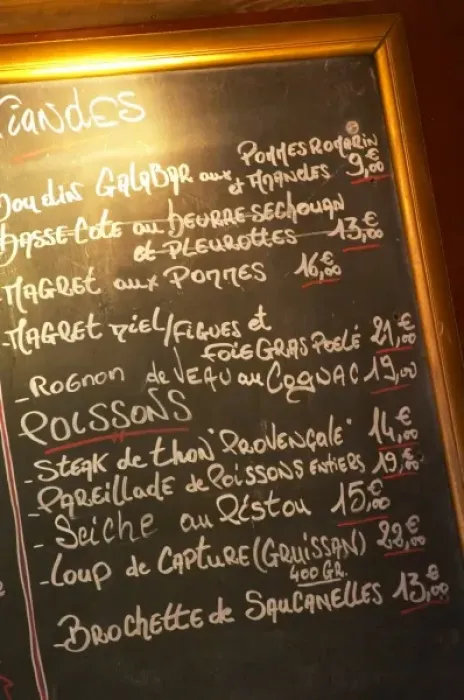 Viandes
Boudin GALABAR aux POMMES ROMARIN
et AMANDES 9,€00
BASSE CÔTE au BEURRE SECHOUAN
et PLEUROTTES 13,€00
-MAGRET aux POMMES 16,€00
-MAGRET MIEL/FIGUES et
FOIE GRAS POELÉ 21,€00
-ROGNON de VEAU au COGNAC 19,€00
POISSONS
-STEAK de thon "PROVENÇALE" 14,€00
-PAREILLADE de POISSONS ENTIERS 19,€00
-Seiche au PISTOU 15,€00
-Loup de CAPTURE (GRUISSAN) 22,€00
400 GR.
-BROCHETTE de SAUCANELLES 13,€00